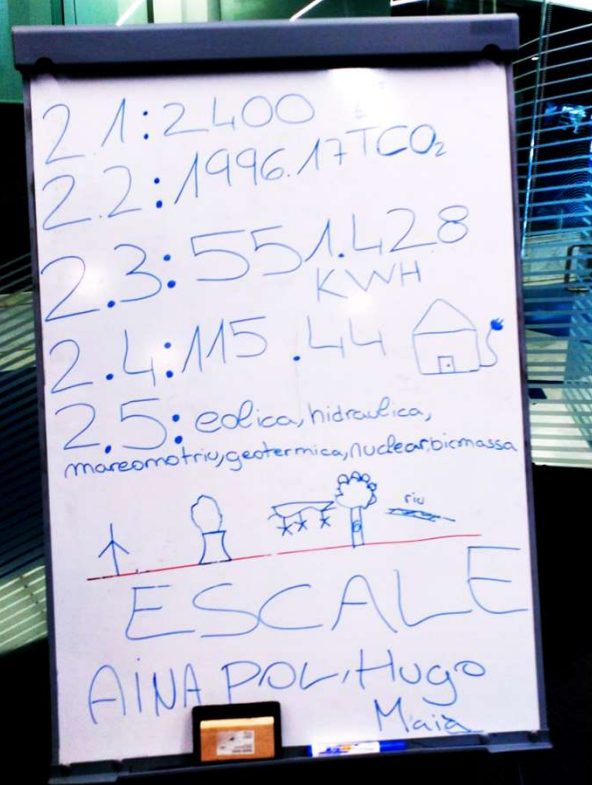 2.1:2400
2.2:1996.17TCO₂
2.3:551.428
KWH
2.4:115.44
2.5: eolica, hidraulica,
mareomotriu, geotermica, nuclear, biomassa
riu
ESCALE
AINA POL, Hugo
Maia